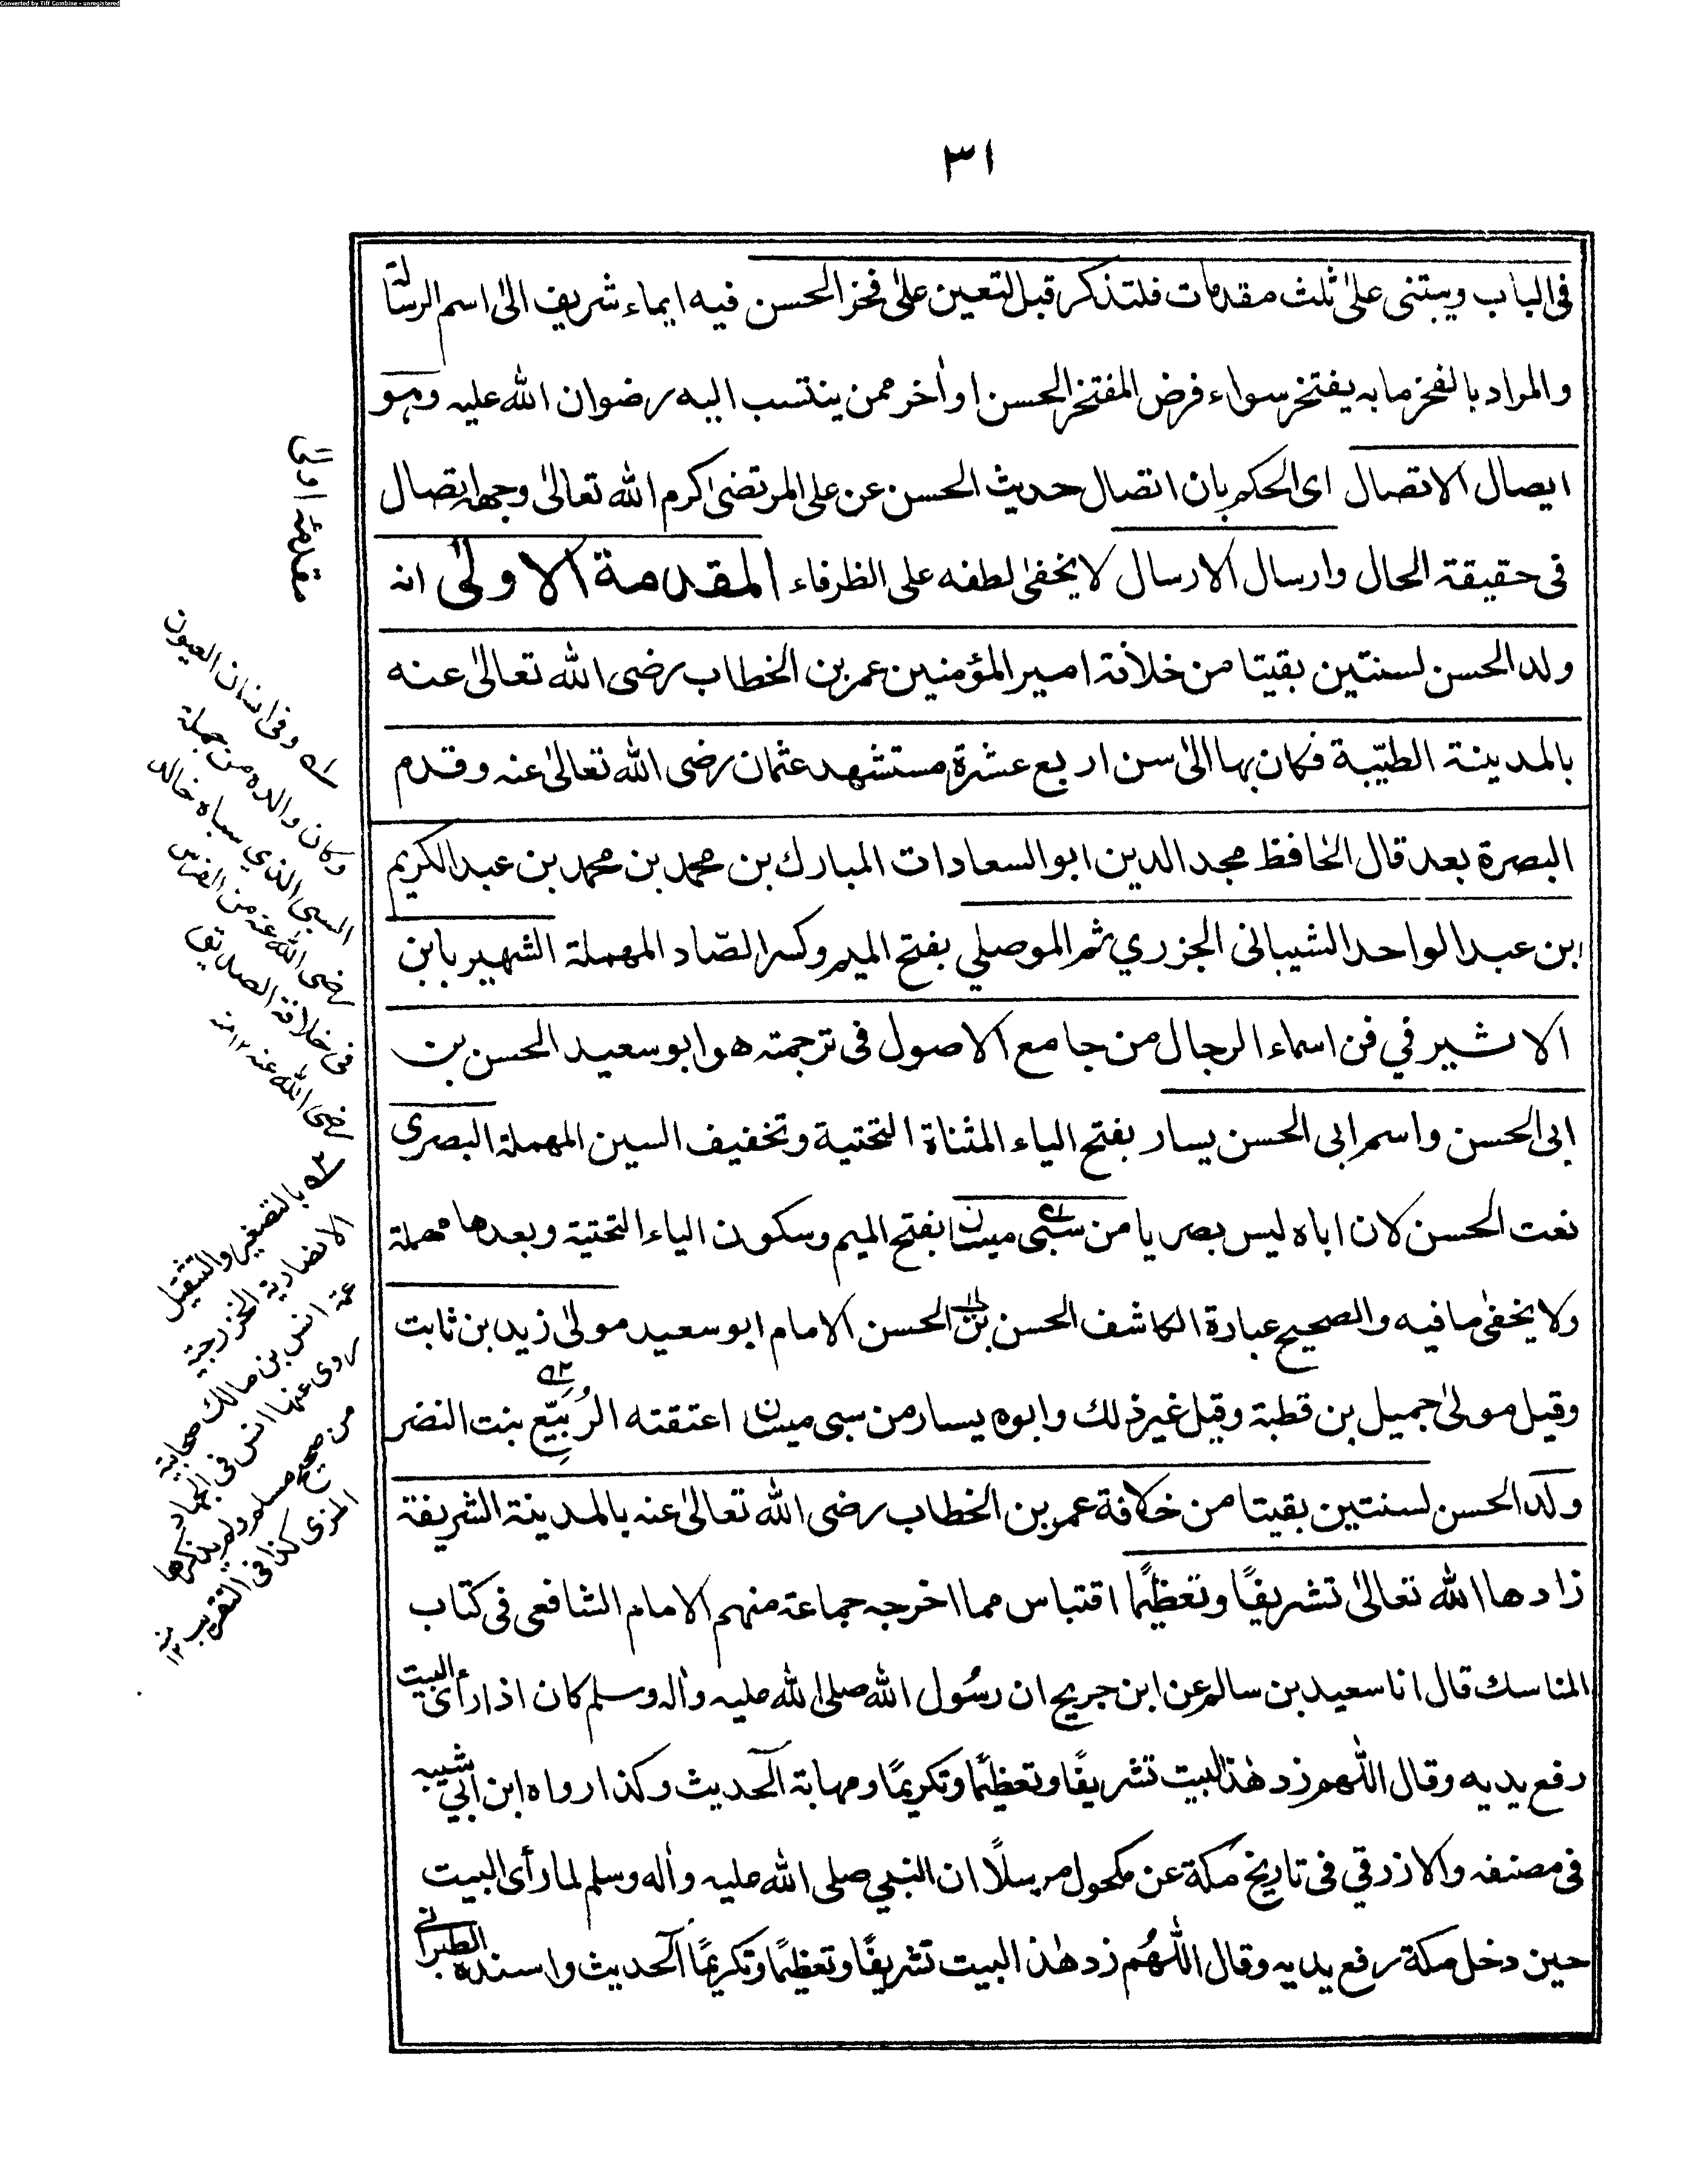 Converted by Tiff Combine - unregistered
٣١
فى الباب ويبتنى علىٰ ثلث مقدمات فلتذكر قبل لتعين علىٰ فخر الحسن فيه ايماء شريف الىٰ اسم الرسالة
والمراد بالفخر ما به يفتخر سواء فرض المفتخر الحسن او اٰخر ممن ينتسب اليه رضوان الله عليه وهو
ايصال الاتصال اى الحكم بان اتصال حديث الحسن عن على المرتضىٰ كرم الله تعالىٰ وجهه اتصال
فى حقيقة الحال وارسال الارسال لا يخفىٰ لطفه على الظرفاء المقدمة الاولىٰ انه
ولد الحسن لسنتين بقيتا من خلافة امير المؤمنين عمر بن الخطاب رضى الله تعالىٰ عنه
بالمدينة الطيّبة فكان بها الىٰ سن اربع عشرة مستشهد عثمان رضى الله تعالىٰ عنه وقدم
البصرة بعد قال الحافظ مجد الدين ابو السعادات المبارك بن محمد بن محمد بن عبد الكريم
ابن عبد الواحد الشيبانى الجزري ثم الموصلي بفتح الميم وكسر الصّاد المهملة الشهير بابن
الاثير في فن اسماء الرجال من جامع الاصول فى ترجمته هو ابو سعيد الحسن بن
ابى الحسن واسم ابى الحسن يسار بفتح الياء المثناة التحتية وتخفيف السين المهملة البصرى
نعت الحسن لان اباه ليس بصريا من سبى ميسان بفتح الميم وسكون الياء التحتية وبعدها مهملة
ولا يخفىٰ ما فيه والصحيح عبارة الكاشف الحسن بن ابى الحسن الامام ابو سعيد مولىٰ زيد بن ثابت
وقيل مولىٰ جميل بن قطبة وقيل غير ذلك وابوه يسار من سبى ميسان اعتقته الرُبَيِّع بنت النضر
ولد الحسن لسنتين بقيتا من خلافة عمر بن الخطاب رضى الله تعالىٰ عنه بالمدينة الشريفة
زادها الله تعالىٰ تشريفًا وتعظيمًا اقتباس مما اخرجه جماعة منهم الامام الشافعى فى كتاب
المناسك قال انا سعيد بن سالم عن ابن جريج ان رسُول الله صلى الله عليه واٰله وسلم كان اذا رأى البيت
رفع يديه وقال اللّٰهم زد هٰذا البيت تشريفًا وتعظيمًا وتكريمًا ومهابة الحديث وكذا رواه ابن ابي شيبه
فى مصنفه والازرقي فى تاريخ مكة عن مكحول مرسلًا ان النبي صلى الله عليه واٰله وسلم لما رأى البيت
حين دخل مكة رفع يديه وقال اللّٰهُم زد هٰذا البيت تشريفًا وتعظيمًا وتكريمًا الحديث واسنده الطبرانى
مقدمۂ اولىٰ
١ه وفى انسان العيون
وكان والده من جملة
السبى الذي سباه خالد
رضى الله عنه من الفرس
فى خلافة الصديق
رضى الله عنه ١٢ منه
٢ه بالتصغير والتثقيل
الانصارية الخزرجية
عمة انس بن مالك صحابية
روى عنها انس فى الجهاد
من صحيح مسلم ولم يذكرها
المزى كذا فى التقريب ١٢ منه